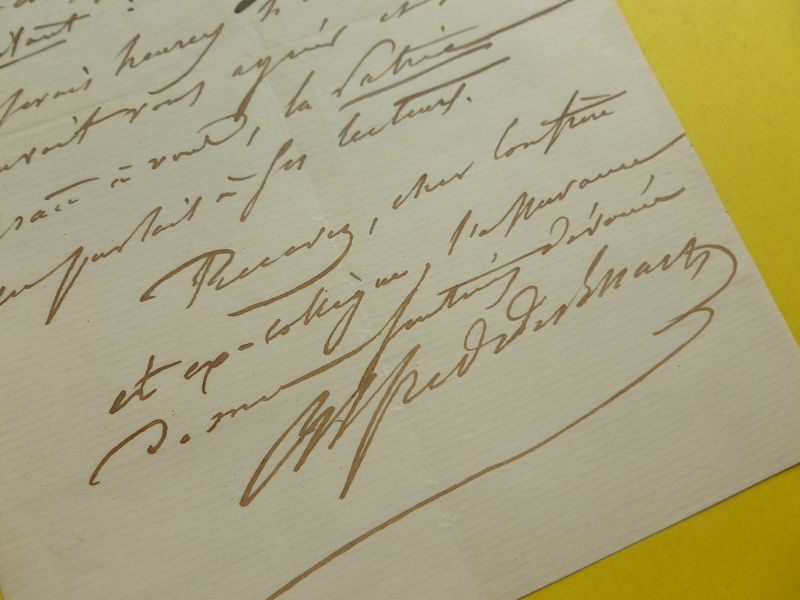 serais heureux
vous agréer et
à vous, la Patrie
en parlait à ses lecteurs.
Recevez, cher confrère
et ex-collègue, l'assurance
de mes sentimts dévoués
Alfred des Essarts